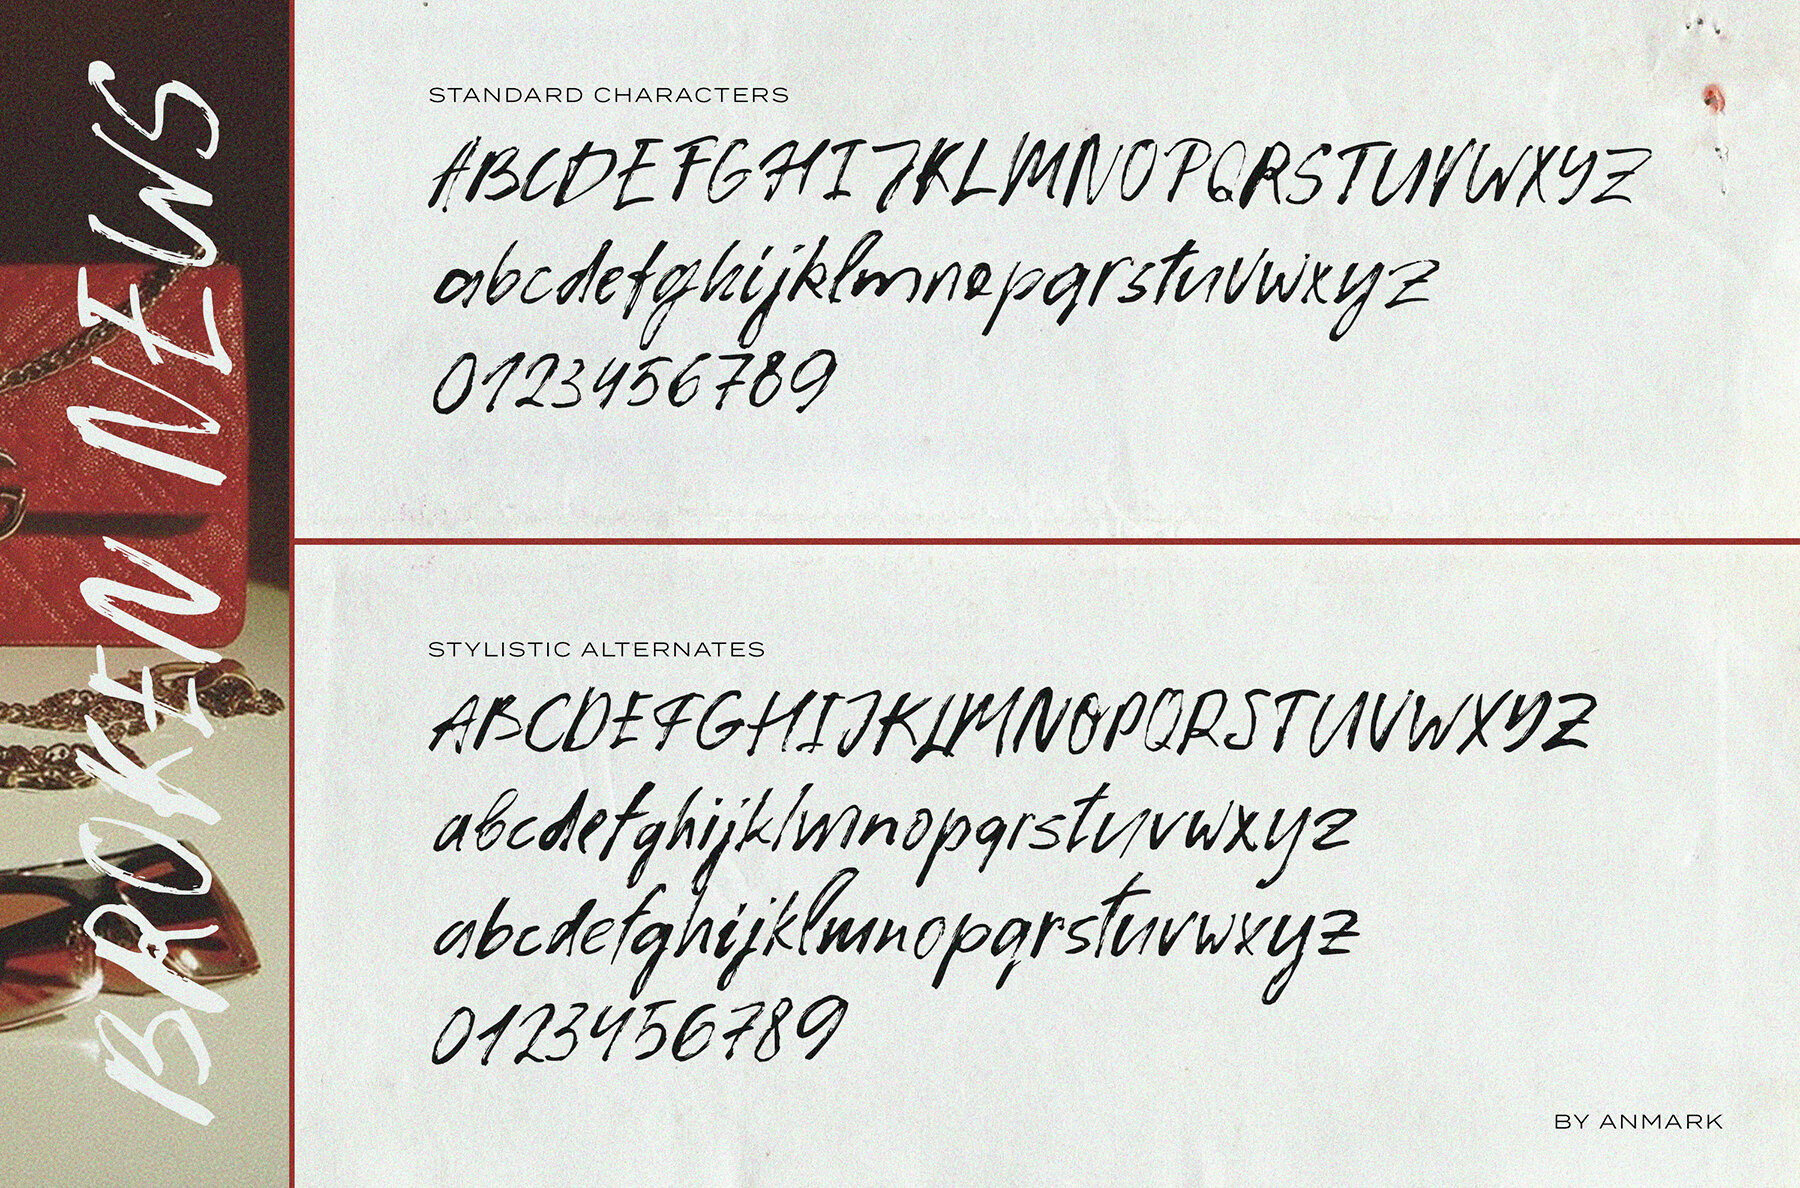 BROKEN NEWS
STANDARD CHARACTERS
ABCDEFGHIJKLMNOPQRSTUVWXYZ
abcdefghijklmnopqrstuvwxyz
0123456789
STYLISTIC ALTERNATES
ABCDEFGHIJKLMNOPQRSTUVWXYZ
abcdefghijklmnopqrstuvwxyz
abcdefghijklmnopqrstuvwxyz
0123456789
BY ANMARK